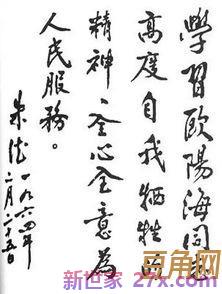 學習歐陽海同志
高度自我牺牲的
精神、全心全意為
人民服務。
朱德
一九六四年
二月二十五日
直角网
新世家 www.